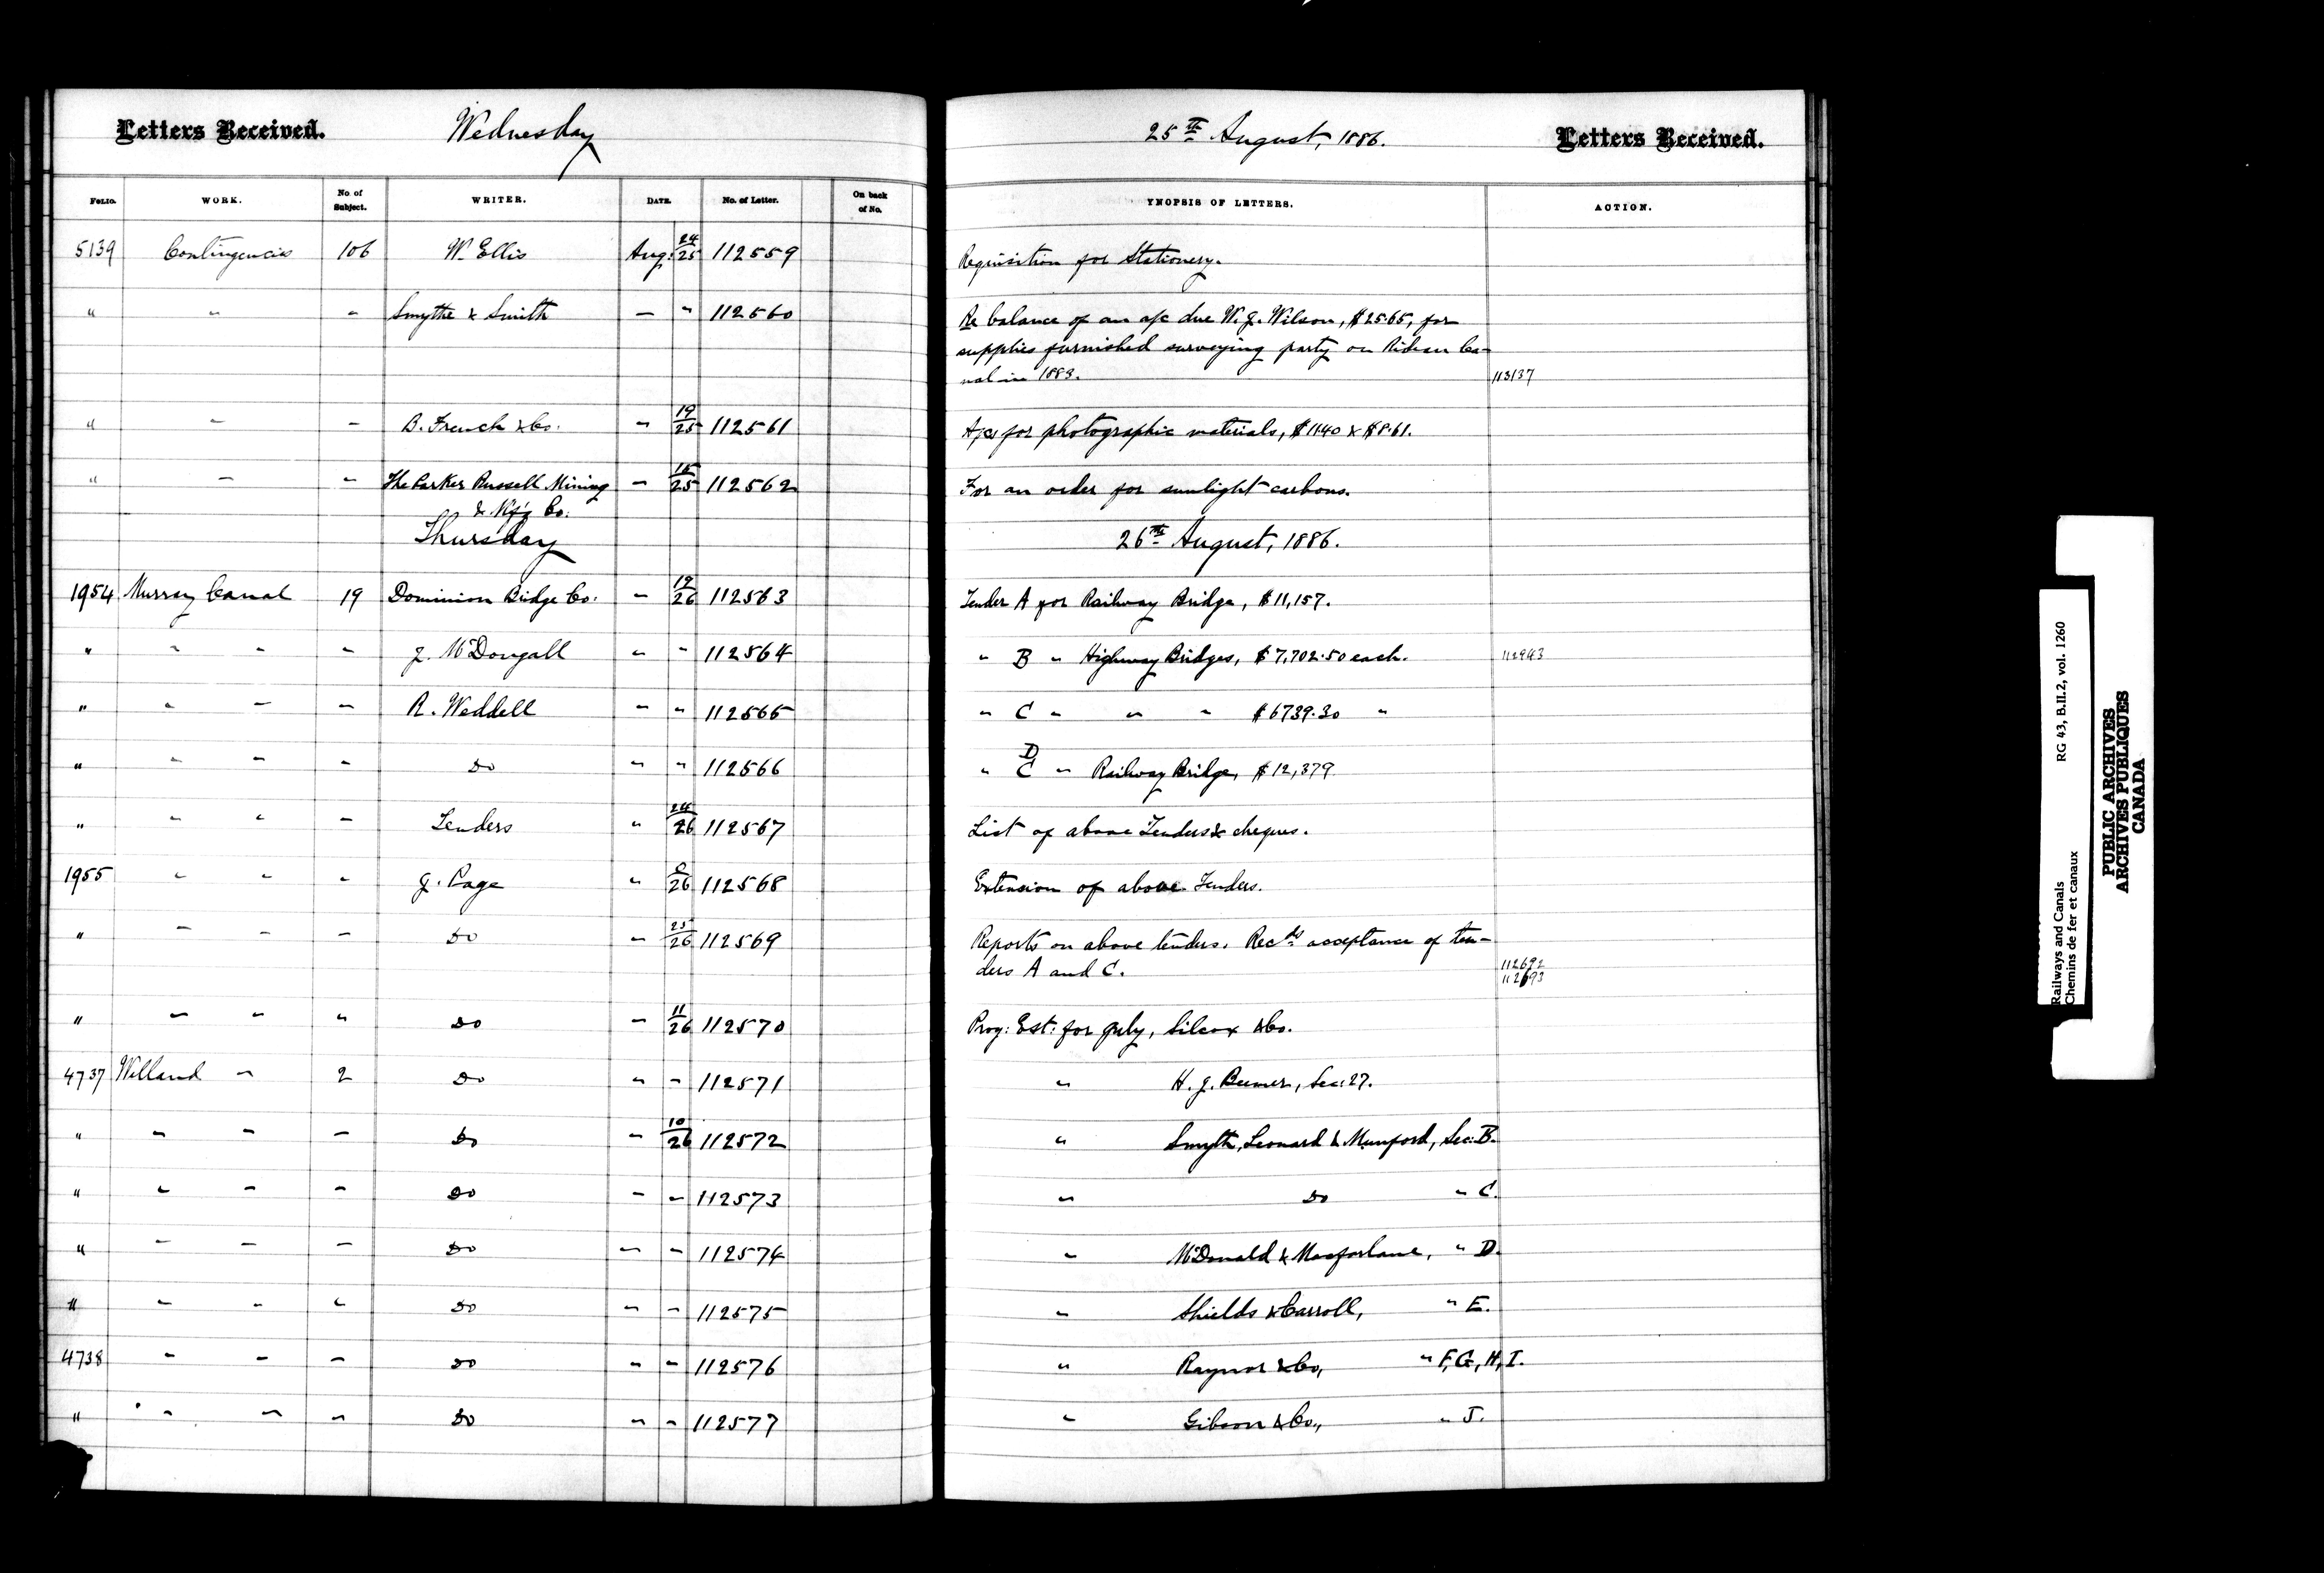 Letters Received. Wednesday 25th August, 1886. Letters Received.
FOLIO. WORK. No of Subject. WRITER. DATE. No. of Letter. On back of No. YNOPSIS OF LETTERS. ACTION.
5139 Contingencies 106 W. Ellis Aug: 24/25 112559 Requisition for Stationery.
" " " Smythe & Smith " " 112560 Re balance of an a/c due W. J. Wilson, $25.65, for
supplies furnished surveying party on Rideau Ca-
nal in 1883. 113137
" " " B. French & Co. " 19/25 112561 A/cs for photographic materials, $11.40 & $8.61.
" " " The Parker Russell Mining " 15/25 112562 For an order for sunlight carbons.
& Mfg Co.
Thursday 26th August, 1886.
1954 Murray Canal 19 Dominion Bridge Co. " 19/26 112563 Tender A for Railway Bridge, $11,157.
" " " " J. McDougall " " 112564 " B " Highway Bridges, $7,702.50 each. 112943
" " " " R. Weddell " " 112565 " C " " " $6739.30 "
" " " " Do " " 112566 " D C " Railway Bridge, $12,379.
" " " " Tenders " 24/26 112567 List of above Tenders & cheques.
1955 " " " J. Page " /26 112568 Extension of above Tenders.
" " " " Do " 25/26 112569 Reports on above tenders. Recds acceptance of ten-
ders A and C. 112692
112693
" " " " Do " 11/26 112570 Prog: Est: for July, Silcox & Co.
4737 Welland " 2 Do " " 112571 " H. J. Beemer, Sec: 27.
" " " " Do " 10/26 112572 " Smyth, Leonard & Munford, Sec: B.
" " " " Do " " 112573 " Do " C.
" " " " Do " " 112574 " McDonald & Macfarlane, " D.
" " " " Do " " 112575 " Shields & Carroll, " E.
4738 " " " Do " " 112576 " Raynor & Co, " F, G, H, I.
" " " " Do " " 112577 " Gibson & Co., " J.
Railways and Canals RG 43, B.II.2, vol. 1260
Chemins de fer et canaux
PUBLIC ARCHIVES
ARCHIVES PUBLIQUES
CANADA